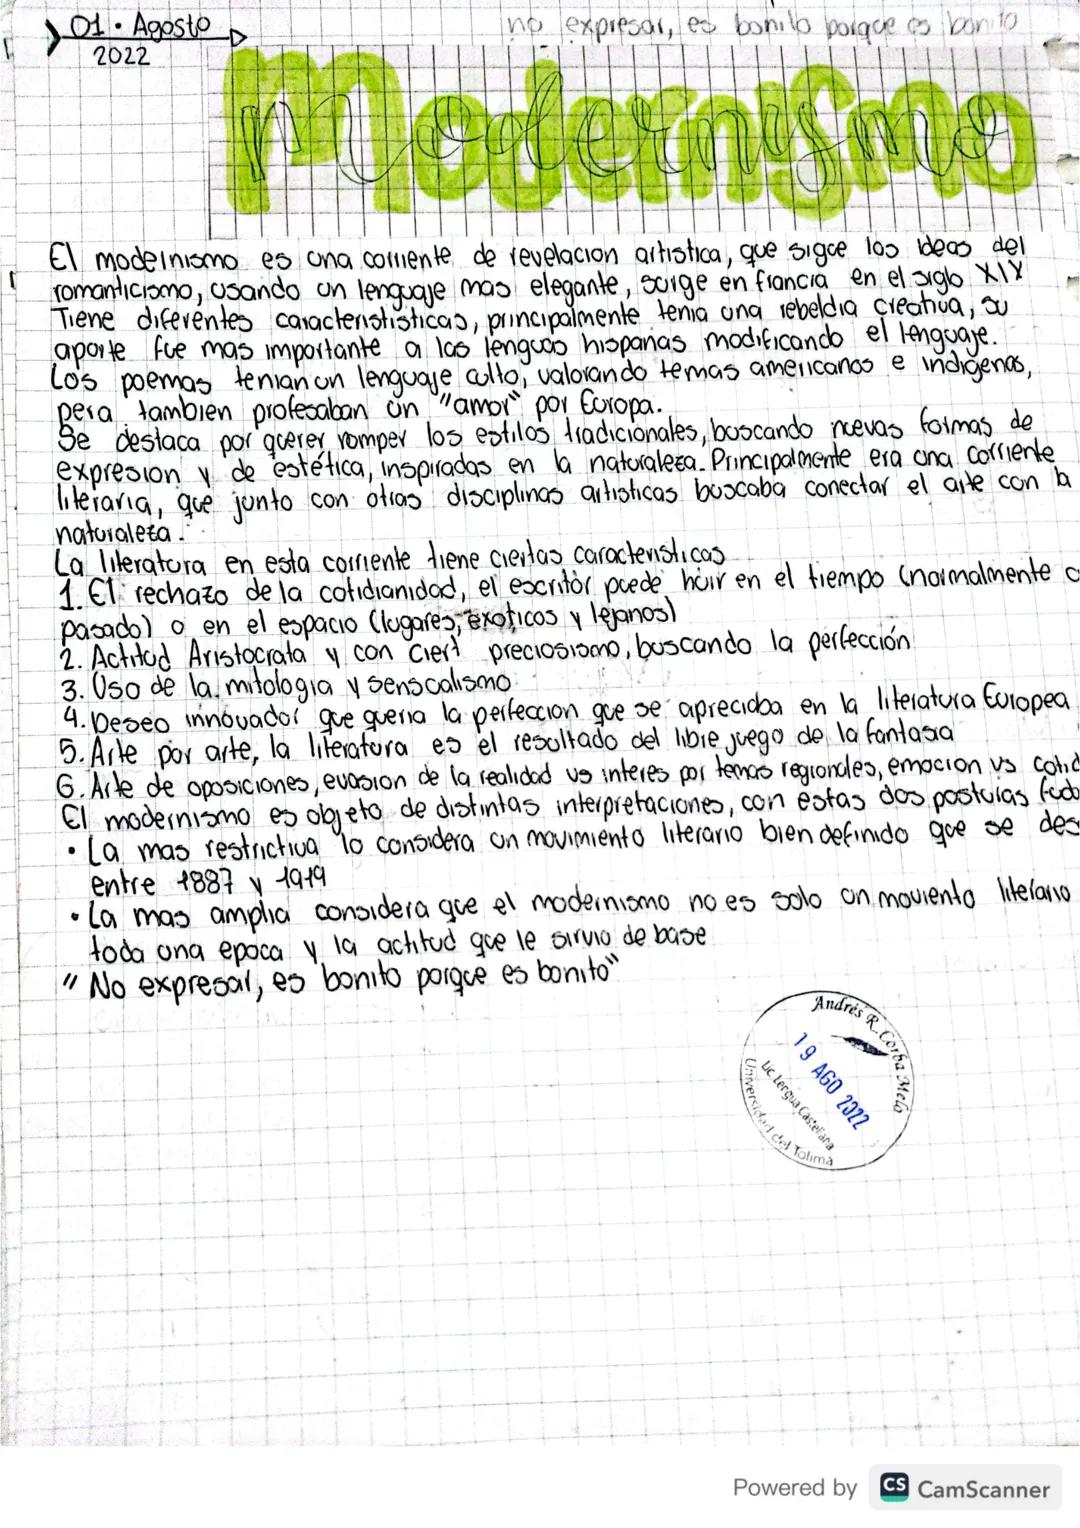 01 • Agosto
2022
no expresar, es bonito porque es bonito
Modernismo
El modernismo es una corriente de revelacion artistica, que sigue los ideas del
romanticismo, usando un lenguaje mas elegante, surge en francia en el siglo XIX
Tiene diferentes caracterististicas, principalmente tenia una rebeldia creativa, su
aporte fue mas importante a las lenguas hispanas modificando el lenguaje.
Los poemas tenian un lenguaje culto, valorando temas americanos e indigenas,
pera tambien profesaban un "amor" por Europa.
Se destaca por querer romper los estilos tradicionales, buscando nuevas formas de
expresion y de estética, inspiradas en la naturaleza. Principalmente era una corriente
literaria, que junto con otras disciplinas artisticas buscaba conectar el arte con la
naturaleza.
La literatura en esta corriente tiene ciertas caracteristicas
1. El rechazo de la cotidianidad, el escritor puede huir en el tiempo (normalmente
pasado) o en el espacio (lugares, exoticos y lejanos)
2. Actitud Aristocrata y con ciert preciosismo, buscando la perfección
3. Uso de la mitologia y senscalismo
4. Deseo innovador que queria la perfeccion que se apreciaba en la literatura Europea
5. Arte por arte, la literatura es el resultado del libre juego de la fantasia
6. Arte de oposiciones, evasion de la realidad vs interes por temas regionales, emocion vs cotid
El modernismo es objeto de distintas interpretaciones, con estas dos posturas fudo
• La mas restrictiva lo considera un movimiento literario bien definido que se des
entre 1887 y 1919
• La mas amplia considera que el modernismo no es solo un moviento literario
toda una epoca y la actitud que le sirvio de base
" No expresar, es bonito porque es bonito"
Andrés R. Corba Melo
19 AGO 2022
Lic Lengua Castellana
Universidad del Tolima
Powered by CS CamScanner